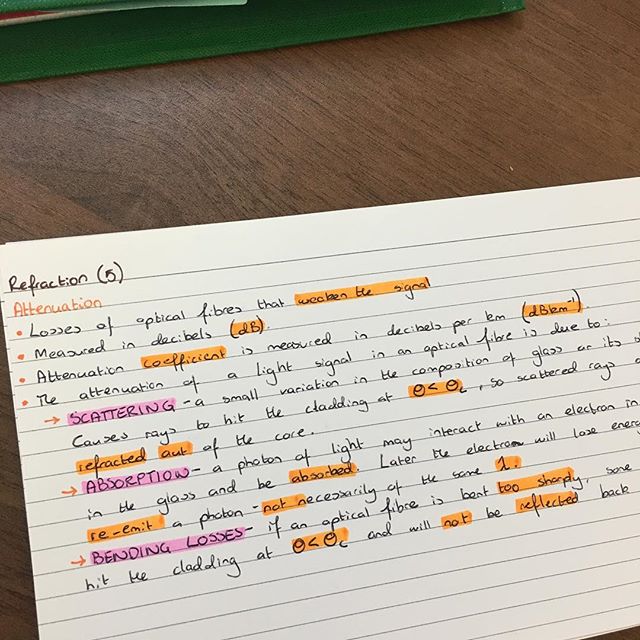 Refraction (5)
Attenuation
• Losses of optical fibres that weaken the signal
• Measured in decibels (dB).
• Attenuation coefficient is measured in decibels per km (dBkm⁻¹).
• The attenuation of a light signal in an optical fibre is due to:
→ SCATTERING - a small variation in the composition of glass or its
Causes rays to hit the cladding at θ<θc, so scattered rays
refracted out of the core.
→ ABSORPTION - a photon of light may interact with an electron in
in the glass and be absorbed. Later the electron will lose
re-emit a photon - not necessarily of the same λ.
→ BENDING LOSSES - if an optical fibre is bent too sharply, some
hit the cladding at θ<θc and will not be reflected back